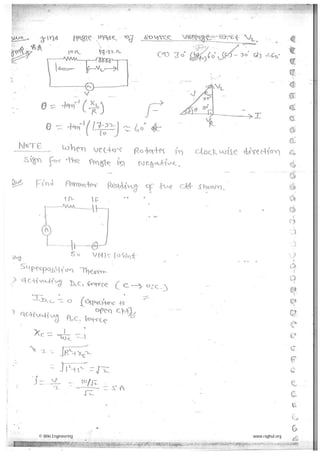 Find Phase Angle of source voltage w.r.t VL.
10Ω 17.32Ω
(A) 30° (B) 60° (C) -30° (D) -60°
VL
V
θ = tan⁻¹ (XL/R)
θ = tan⁻¹ (17.32/10) ≈ 60°
V VL
30°
60°
VR I
NOTE When vector Rotates in clockwise direction
sign for the Angle is Negative.
Find Ammeter Reading of the ckt shown.
1Ω 1F
A
5v V(t) = 10 sint
Superposition Theorem
> activating D.C. source (C → o/c.)
IDC = 0 [capacitor is
open ckt]
> activating A.C. source
XC = 1/ωc = 1
Z = √R²+Xc²
= √1²+1² = √2
I = V/Z = 10/√2 / √2 = 5A
© Wiki Engineering
www.raghul.org